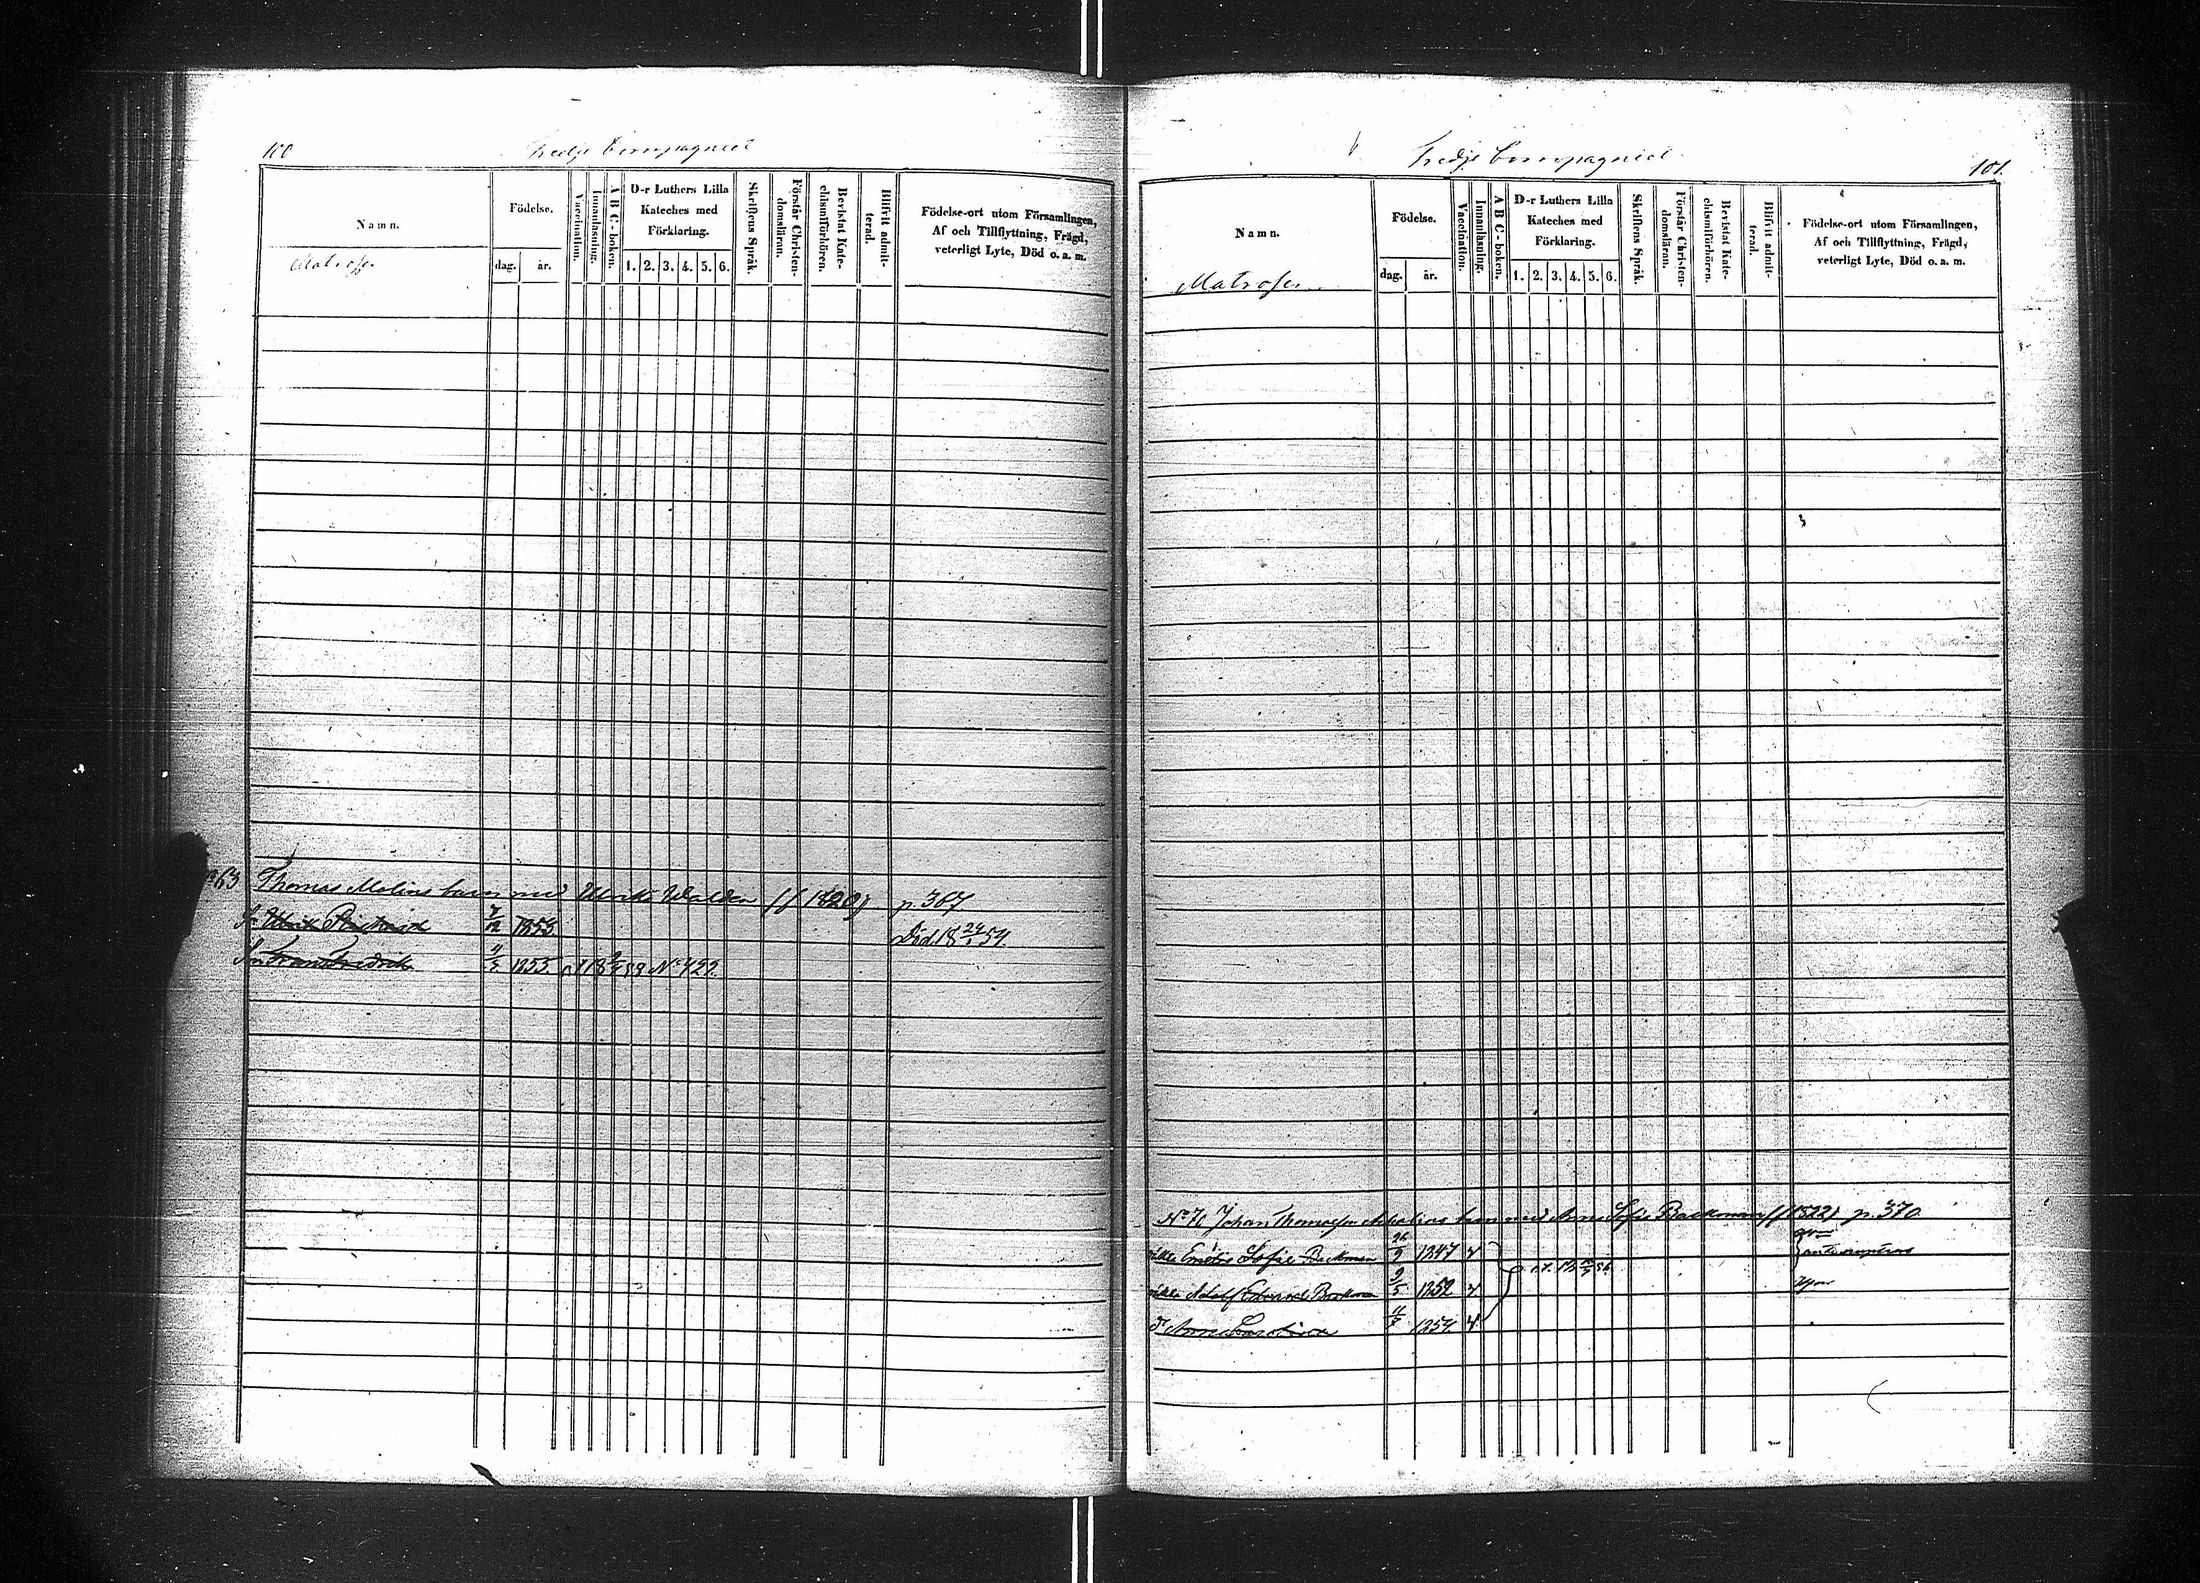 100
Tredje Compagniet
Namn.
Matroser
Födelse.
dag. år.
Vaccination.
Innanläsning.
A B C-boken.
D-r Luthers Lilla
Kateches med
Förklaring.
1. 2. 3. 4. 5. 6.
Skriftens Språk.
Förstår Christen-
domsläran.
Bevistat Kate-
chismiförhören.
Blifvit admit-
terad.
Födelse-ort utom Församlingen,
Af och Tillflyttning, Frägd,
veterligt Lyte, Död o. a. m.
63 Thomas Molins barn med Ulrika Walden (f 1820) p. 367
1853 Död 18 24 54.
Frans Fredrik 1855. No 422.
Tredje Compagniet
101.
Namn.
Matroser
Födelse.
dag. år.
Vaccination.
Innanläsning.
A B C-boken.
D-r Luthers Lilla
Kateches med
Förklaring.
1. 2. 3. 4. 5. 6.
Skriftens Språk.
Förstår Christen-
domsläran.
Bevistat Kate-
chismiförhören.
Blifvit admit-
terad.
Födelse-ort utom Församlingen,
Af och Tillflyttning, Frägd,
veterligt Lyte, Död o. a. m.
No 70 Johan Thomasson barn med Anna Sofia Backman (f 1822) p. 370
Sofie Backman 26/9 1847 v
Adolf Edvard Backman 9/5 1852 v
Anna 1854 v